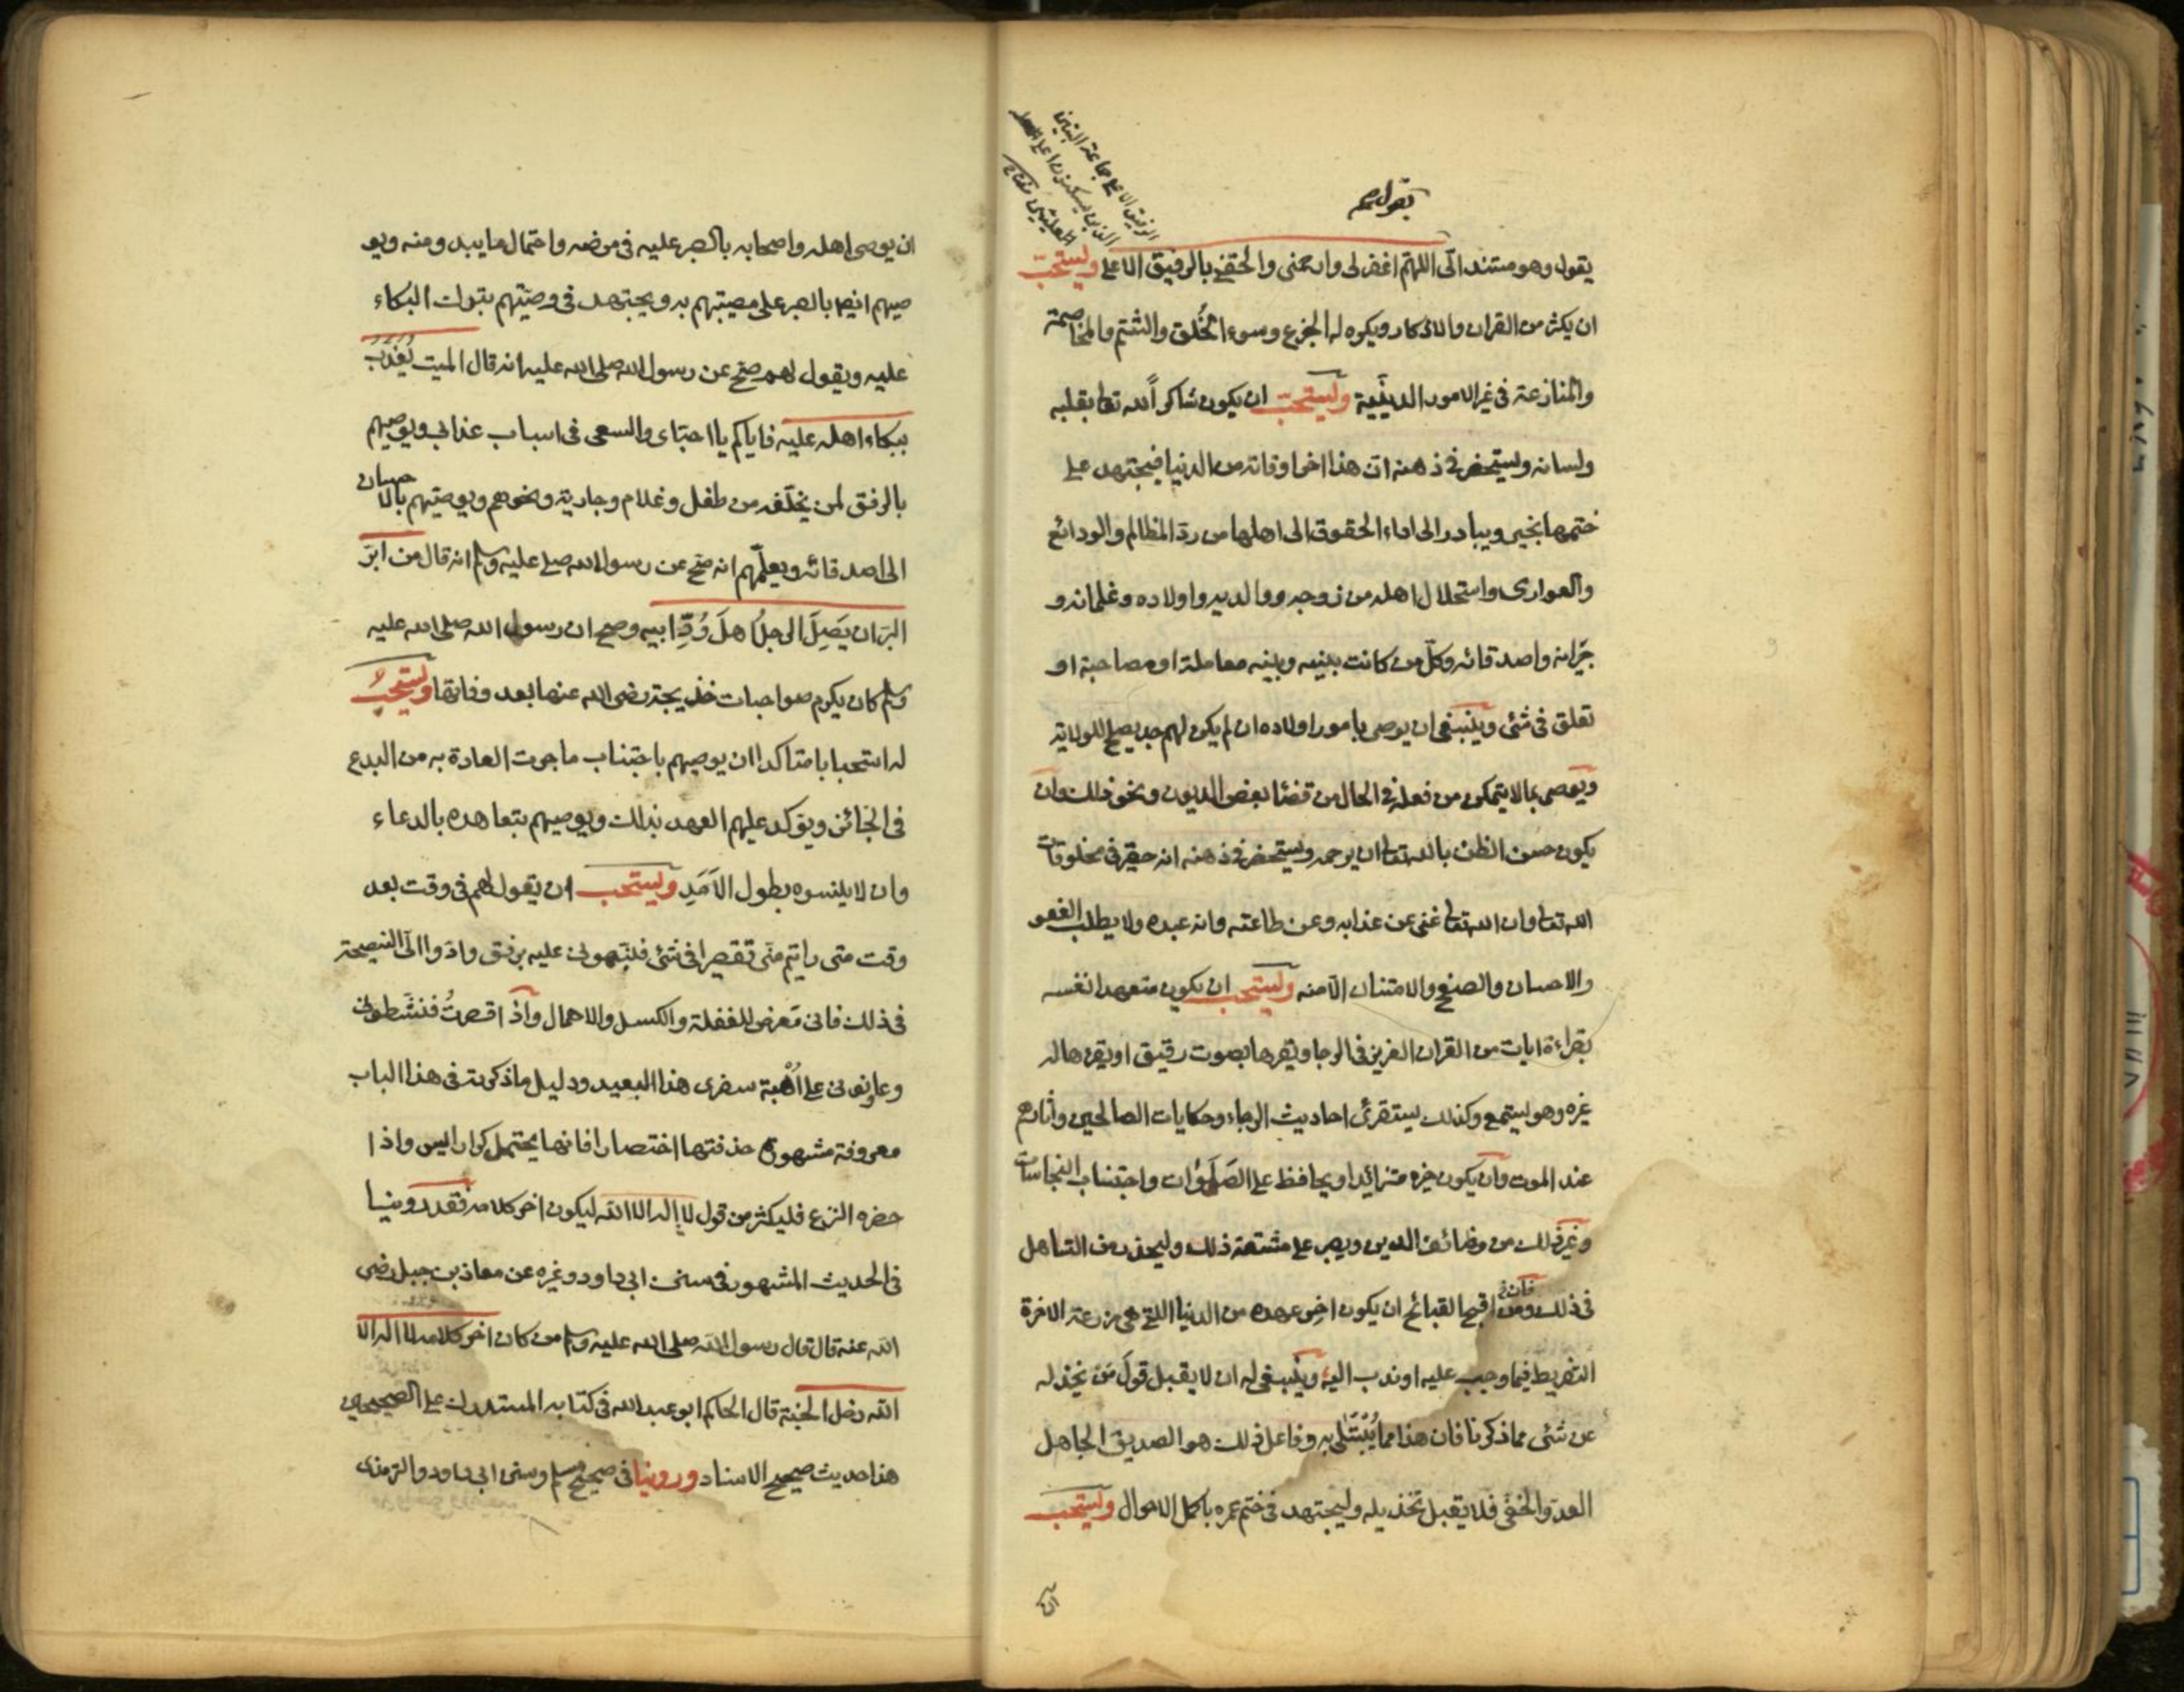 الرفيق الاعلى جماعة النبيين
الذين يسكنون اعلى
يقول
يقول وهو مستند الىّ اللهمّ اغفر لى وارحمنى والحقنى بالرفيق الاعلى ويستحبّ
ان يكثر من القران والاذكار ويكره له الجزع وسوء الخُلق والشتم والمخاصمة
والمنازعة فى غير الامور الدينّية ويستحبّ ان يكون شاكراً لله تعا بقلبه
ولسانه ويستحضر فى ذهنه ان هذا اخر اوقاته من الدنيا فيجتهد على
ختمها بخير ويبادر الى اداء الحقوق الى اهلها من ردّ المظالم والودائع
والعوارى واستحلال اهله من زوجه ووالديه واولاده وغلمانه و
جيرانه واصدقائه وكلّ من كانت بينه وبينه معاملة او مصاحبة او
تعلق فى شئ وينبغى ان يوصى بامور اولاده ان لم يكن لهم جد يصلح للولاية
ويوصى بما لا يتمكن من فعله فى الحال من قضا بعض الديون ونحو ذلك وان
يكون حسن الظن بالله تعا ان يرحمه ويستحضر فى ذهنه انه حقير فى مخلوقات
الله تعا وان الله تعا غنى عن عذابه وعن طاعته وانه عبده ولا يطلب العفو
والاحسان والصفح والامتنان الّا منه ويستحب ان يكون متعهدا نفسه
بقراءة ايات من القران العزيز فى الرجا ويقرها بصوت رقيق او يقرها له
غيره وهو يستمع وكذلك يستقرئ احاديث الرجاء وحكايات الصالحين واثارهم
عند الموت وان يكون خيره متزائيدا ويحافظ على الصَلَوٰات واجتناب النجاسات
وغير ذلك من وضائف الدين ويصبر على مشتقة ذلك وليحذر من التساهل
فى ذلك فان من اقبح القبائح ان يكون اخر عهده من الدنيا التى هى مزرعة الاخرة
التفريط فيما وجب عليه او ندب اليه وينبغى له ان لا يقبل قول من يخذله
عن شئ مما ذكرنا فان هذا مما يُبْتَلى به وفاعل ذلك هو الصديق الجاهل
العدوّ الخفىّ فلا يقبل تخذيله وليجتهد فى ختم عمره باكمل الاحوال ويستحب
ان
ان يوصى اهله واصحابه بالصبر عليه فى مرضه واحتمال ما يبدو منه ويو
صيهم ايضا بالصبر على مصيبتهم به ويجتهد فى وصيّتهم بترك البكاء
عليه ويقول لهم صحّ عن رسول الله صلى الله عليه انه قال الميت يُعذّبُ
ببكاء اهله عليه فاياكم يا احبّاى والسعى فى اسباب عذابى ويوصيهم
بالرفق لمن يخلّفه من طفل وغلام وجارية ونحوهم ويوصيهم بالاحسان
الى اصدقائه ويعلّمهم انه صحّ عن رسول الله صلى عليه وسلم انه قال من ابرّ
البرّ ان يَصِلَ الرجلُ اهلَ وُدِّ ابيه وصح ان رسول الله صلى الله عليه
وسلم كان يكرم صواحبات خديجة رضى الله عنها بعد وفاتها ويستحب
له استحبابا متاكدا ان يوصيهم باجتناب ما جرت العادة به من البدع
فى الجنائز ويؤكد عليهم العهد بذلك ويوصيهم بتعاهده بالدعاء
وان لا ينسوه بطول الاَمَدِ ويستحب ان يقول لهم فى وقت بعد
وقت متى رايتم منّى تقصيرا فى شئ فنبّهونى عليه برفق وادّوا الىّ النصيحة
فى ذلك فانى مَعرض للغفلة والكسل والاهمال واذا قصرتُ فنشّطونى
وعاونونى على اُهْبة سفرى هذا البعيد ودليل ما ذكرت فى هذا الباب
معروفة مشهورة حذفتها اختصارا فانها يحتمل كراريس واذا
حضره النزع فليكثر من قول لا اله الا الله ليكون اخر كلامه فقد روينا
فى الحديث المشهور فى سنن ابى داود وغيره عن معاذ بن جبل رضى
الله عنه قال قال رسول الله صلى الله عليه وسلم من كان اخر كلامه لا اله الا
الله دخل الجنة قال الحاكم ابو عبد الله فى كتابه المستدرك على الصحيحين
هذا حديث صحيح الاسناد وروينا فى صحيح مسلم وسنن ابى داود والترمذى